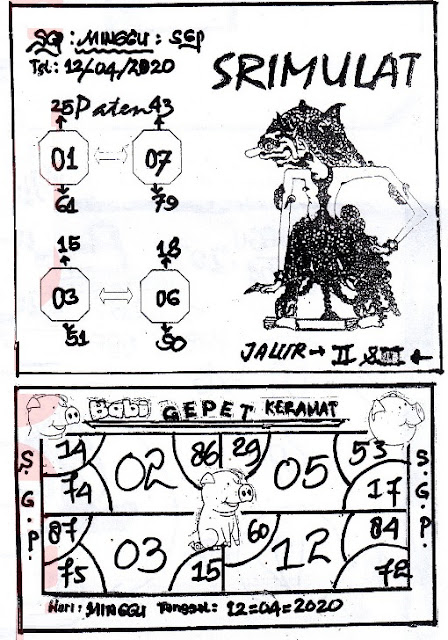 SGP : MINGGU : SGP
Tgl.: 12/-04/2020
SRIMULAT
25 Paten 43
01 07
61 79
15 18
03 06
51 50
JALUR → II &
Babi GEPET KERAMAT
14 02 86 29 05 53
74 17
S.G.P. S.G.P.
87 03 60 12 84
75 15 72
Hari: MINGGU Tanggal: 12=04=2020